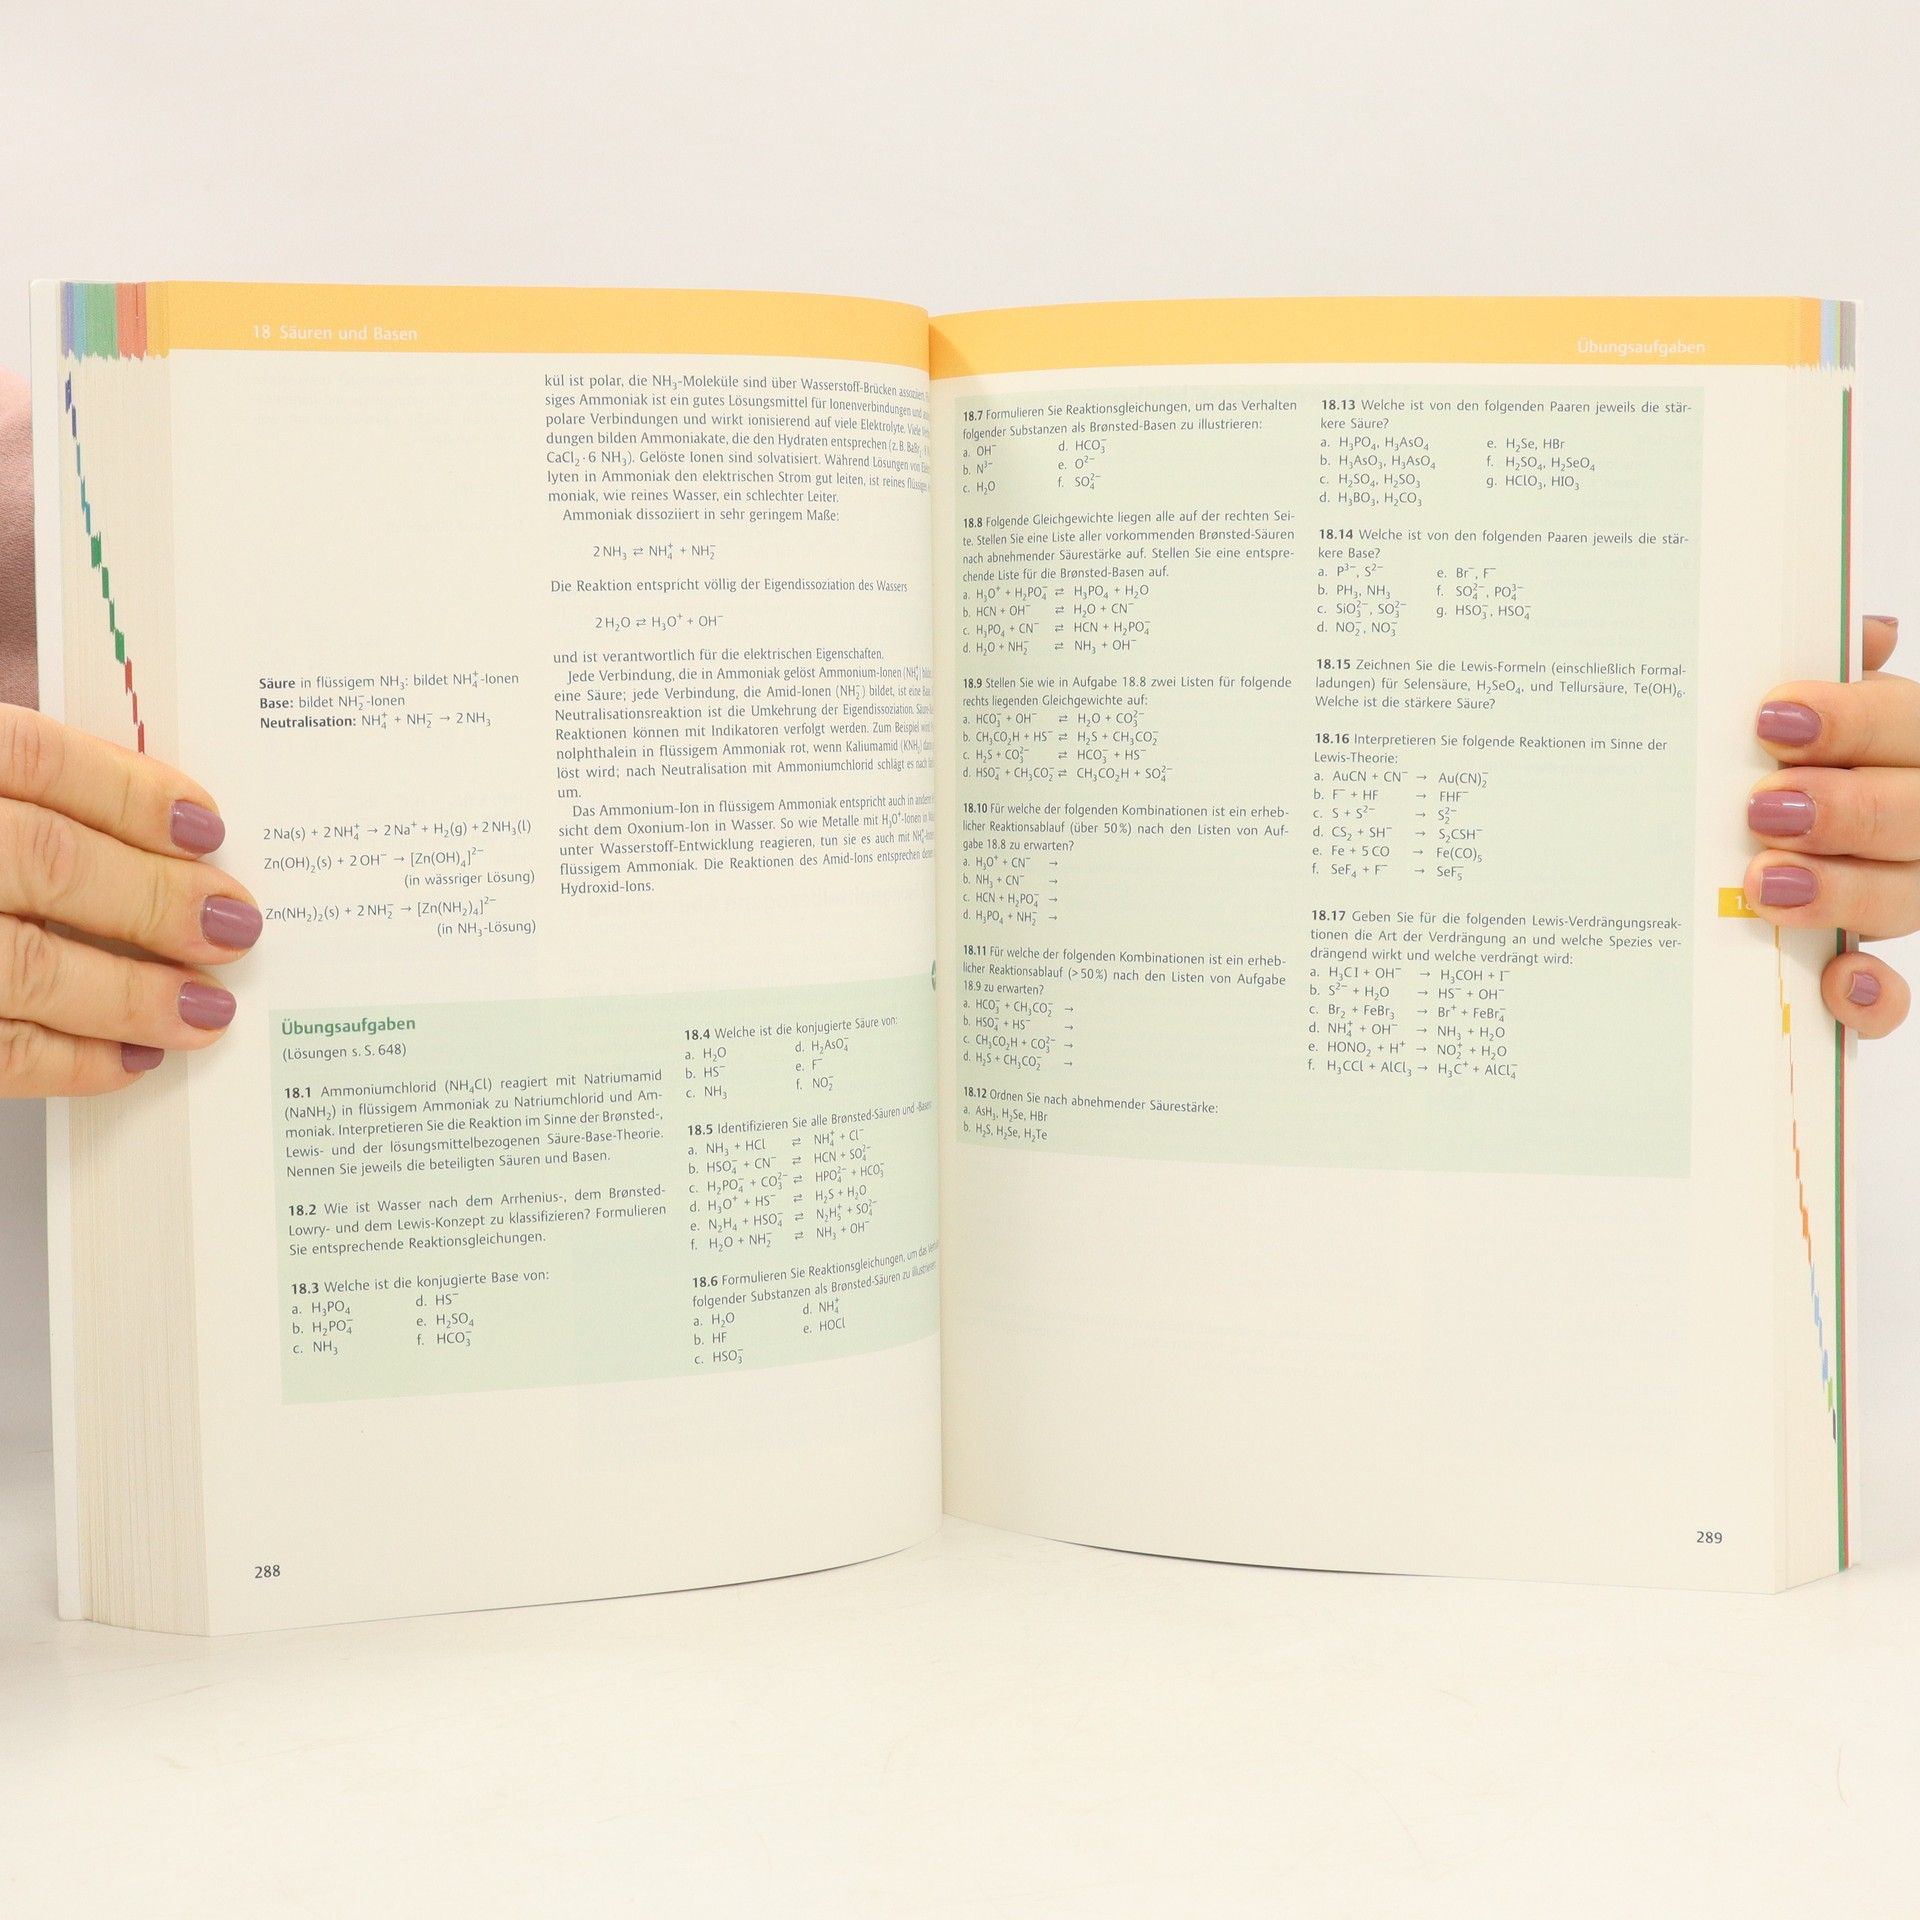 18 Säuren und Basen
kül ist polar, die NH₃-Moleküle sind über Wasserstoff-Brücken assoziiert.
siges Ammoniak ist ein gutes Lösungsmittel für Ionenverbindungen und
polare Verbindungen und wirkt ionisierend auf viele Elektrolyte. Viele
dungen bilden Ammoniakate, die den Hydraten entsprechen (z. B.
CaCl₂ · 6 NH₃). Gelöste Ionen sind solvatisiert. Während Lösungen von
lyten in Ammoniak den elektrischen Strom gut leiten, ist reines
moniak, wie reines Wasser, ein schlechter Leiter.
Ammoniak dissoziiert in sehr geringem Maße:
2 NH₃ ⇄ NH₄⁺ + NH₂⁻
Die Reaktion entspricht völlig der Eigendissoziation des Wassers
2 H₂O ⇄ H₃O⁺ + OH⁻
und ist verantwortlich für die elektrischen Eigenschaften.
Jede Verbindung, die in Ammoniak gelöst Ammonium-Ionen (NH₄⁺)
eine Säure; jede Verbindung, die Amid-Ionen (NH₂⁻) bildet, ist eine
Neutralisationsreaktion ist die Umkehrung der Eigendissoziation.
Reaktionen können mit Indikatoren verfolgt werden. Zum Beispiel
nolphthalein in flüssigem Ammoniak rot, wenn Kaliumamid (KNH₂)
löst wird; nach Neutralisation mit Ammoniumchlorid schlägt es nach
um.
Das Ammonium-Ion in flüssigem Ammoniak entspricht auch in
sicht dem Oxonium-Ion in Wasser. So wie Metalle mit H₃O⁺-Ionen in
unter Wasserstoff-Entwicklung reagieren, tun sie es auch mit
flüssigem Ammoniak. Die Reaktionen des Amid-Ions entsprechen
Hydroxid-Ions.
Säure in flüssigem NH₃: bildet NH₄⁺-Ionen
Base: bildet NH₂⁻-Ionen
Neutralisation: NH₄⁺ + NH₂⁻ → 2 NH₃
2 Na(s) + 2 NH₄⁺ → 2 Na⁺ + H₂(g) + 2 NH₃(l)
Zn(OH)₂(s) + 2 OH⁻ → [Zn(OH)₄]²⁻
(in wässriger Lösung)
Zn(NH₂)₂(s) + 2 NH₂⁻ → [Zn(NH₂)₄]²⁻
(in NH₃-Lösung)
Übungsaufgaben
(Lösungen s. S. 648)
18.1 Ammoniumchlorid (NH₄Cl) reagiert mit Natriumamid
(NaNH₂) in flüssigem Ammoniak zu Natriumchlorid und Am-
moniak. Interpretieren Sie die Reaktion im Sinne der Brønsted-,
Lewis- und der lösungsmittelbezogenen Säure-Base-Theorie.
Nennen Sie jeweils die beteiligten Säuren und Basen.
18.2 Wie ist Wasser nach dem Arrhenius-, dem Brønsted-
Lowry- und dem Lewis-Konzept zu klassifizieren? Formulieren
Sie entsprechende Reaktionsgleichungen.
18.3 Welche ist die konjugierte Base von:
a. H₃PO₄ d. HS⁻
b. H₂PO₄⁻ e. H₂SO₄
c. NH₃ f. HCO₃⁻
18.4 Welche ist die konjugierte Säure von:
a. H₂O d. H₂AsO₄⁻
b. HS⁻ e. F⁻
c. NH₃ f. NO₂⁻
18.5 Identifizieren Sie alle Brønsted-Säuren und -Basen
a. NH₃ + HCl ⇄ NH₄⁺ + Cl⁻
b. HSO₄⁻ + CN⁻ ⇄ HCN + SO₄²⁻
c. H₂PO₄⁻ + CO₃²⁻ ⇄ HPO₄²⁻ + HCO₃⁻
d. H₃O⁺ + HS⁻ ⇄ H₂S + H₂O
e. N₂H₄ + HSO₄⁻ ⇄ N₂H₅⁺ + SO₄²⁻
f. H₂O + NH₂⁻ ⇄ NH₃ + OH⁻
18.6 Formulieren Sie Reaktionsgleichungen, um das
folgender Substanzen als Brønsted-Säuren zu
a. H₂O d. NH₄⁺
b. HF e. HOCl
c. HSO₃⁻
288
Übungsaufgaben
18.7 Formulieren Sie Reaktionsgleichungen, um das Verhalten
folgender Substanzen als Brønsted-Basen zu illustrieren:
a. OH⁻ d. HCO₃⁻
b. N³⁻ e. O²⁻
c. H₂O f. SO₄²⁻
18.8 Folgende Gleichgewichte liegen alle auf der rechten Sei-
te. Stellen Sie eine Liste aller vorkommenden Brønsted-Säuren
nach abnehmender Säurestärke auf. Stellen Sie eine entspre-
chende Liste für die Brønsted-Basen auf.
a. H₃O⁺ + H₂PO₄⁻ ⇄ H₃PO₄ + H₂O
b. HCN + OH⁻ ⇄ H₂O + CN⁻
c. H₃PO₄ + CN⁻ ⇄ HCN + H₂PO₄⁻
d. H₂O + NH₂⁻ ⇄ NH₃ + OH⁻
18.9 Stellen Sie wie in Aufgabe 18.8 zwei Listen für folgende
rechts liegenden Gleichgewichte auf:
a. HCO₃⁻ + OH⁻ ⇄ H₂O + CO₃²⁻
b. CH₃CO₂H + HS⁻ ⇄ H₂S + CH₃CO₂⁻
c. H₂S + CO₃²⁻ ⇄ HCO₃⁻ + HS⁻
d. HSO₄⁻ + CH₃CO₂⁻ ⇄ CH₃CO₂H + SO₄²⁻
18.10 Für welche der folgenden Kombinationen ist ein erheb-
licher Reaktionsablauf (über 50 %) nach den Listen von Auf-
gabe 18.8 zu erwarten?
a. H₃O⁺ + CN⁻ →
b. NH₃ + CN⁻ →
c. HCN + H₂PO₄⁻ →
d. H₃PO₄ + NH₂⁻ →
18.11 Für welche der folgenden Kombinationen ist ein erheb-
licher Reaktionsablauf (> 50 %) nach den Listen von Aufgabe
18.9 zu erwarten?
a. HCO₃⁻ + CH₃CO₂⁻ →
b. HSO₄⁻ + HS⁻ →
c. CH₃CO₂H + CO₃²⁻ →
d. H₂S + CH₃CO₂⁻ →
18.12 Ordnen Sie nach abnehmender Säurestärke:
a. AsH₃, H₂Se, HBr
b. H₂S, H₂Se, H₂Te
18.13 Welche ist von den folgenden Paaren jeweils die stär-
kere Säure?
a. H₃PO₄, H₃AsO₄ e. H₂Se, HBr
b. H₃AsO₃, H₃AsO₄ f. H₂SO₄, H₂SeO₄
c. H₂SO₄, H₂SO₃ g. HClO₃, HIO₃
d. H₃BO₃, H₂CO₃
18.14 Welche ist von den folgenden Paaren jeweils die stär-
kere Base?
a. P³⁻, S²⁻ e. Br⁻, F⁻
b. PH₃, NH₃ f. SO₄²⁻, PO₄³⁻
c. SiO₃²⁻, SO₃²⁻ g. HSO₃⁻, HSO₄⁻
d. NO₂⁻, NO₃⁻
18.15 Zeichnen Sie die Lewis-Formeln (einschließlich Formal-
ladungen) für Selensäure, H₂SeO₄, und Tellursäure, Te(OH)₆.
Welche ist die stärkere Säure?
18.16 Interpretieren Sie folgende Reaktionen im Sinne der
Lewis-Theorie:
a. AuCN + CN⁻ → Au(CN)₂⁻
b. F⁻ + HF → FHF⁻
c. S + S²⁻ → S₂²⁻
d. CS₂ + SH⁻ → S₂CSH⁻
e. Fe + 5 CO → Fe(CO)₅
f. SeF₄ + F⁻ → SeF₅⁻
18.17 Geben Sie für die folgenden Lewis-Verdrängungsreak-
tionen die Art der Verdrängung an und welche Spezies ver-
drängend wirkt und welche verdrängt wird:
a. H₃CI + OH⁻ → H₃COH + I⁻
b. S²⁻ + H₂O → HS⁻ + OH⁻
c. Br₂ + FeBr₃ → Br⁺ + FeBr₄⁻
d. NH₄⁺ + OH⁻ → NH₃ + H₂O
e. HONO₂ + H⁺ → NO₂⁺ + H₂O
f. H₃CCl + AlCl₃ → H₃C⁺ + AlCl₄⁻
289